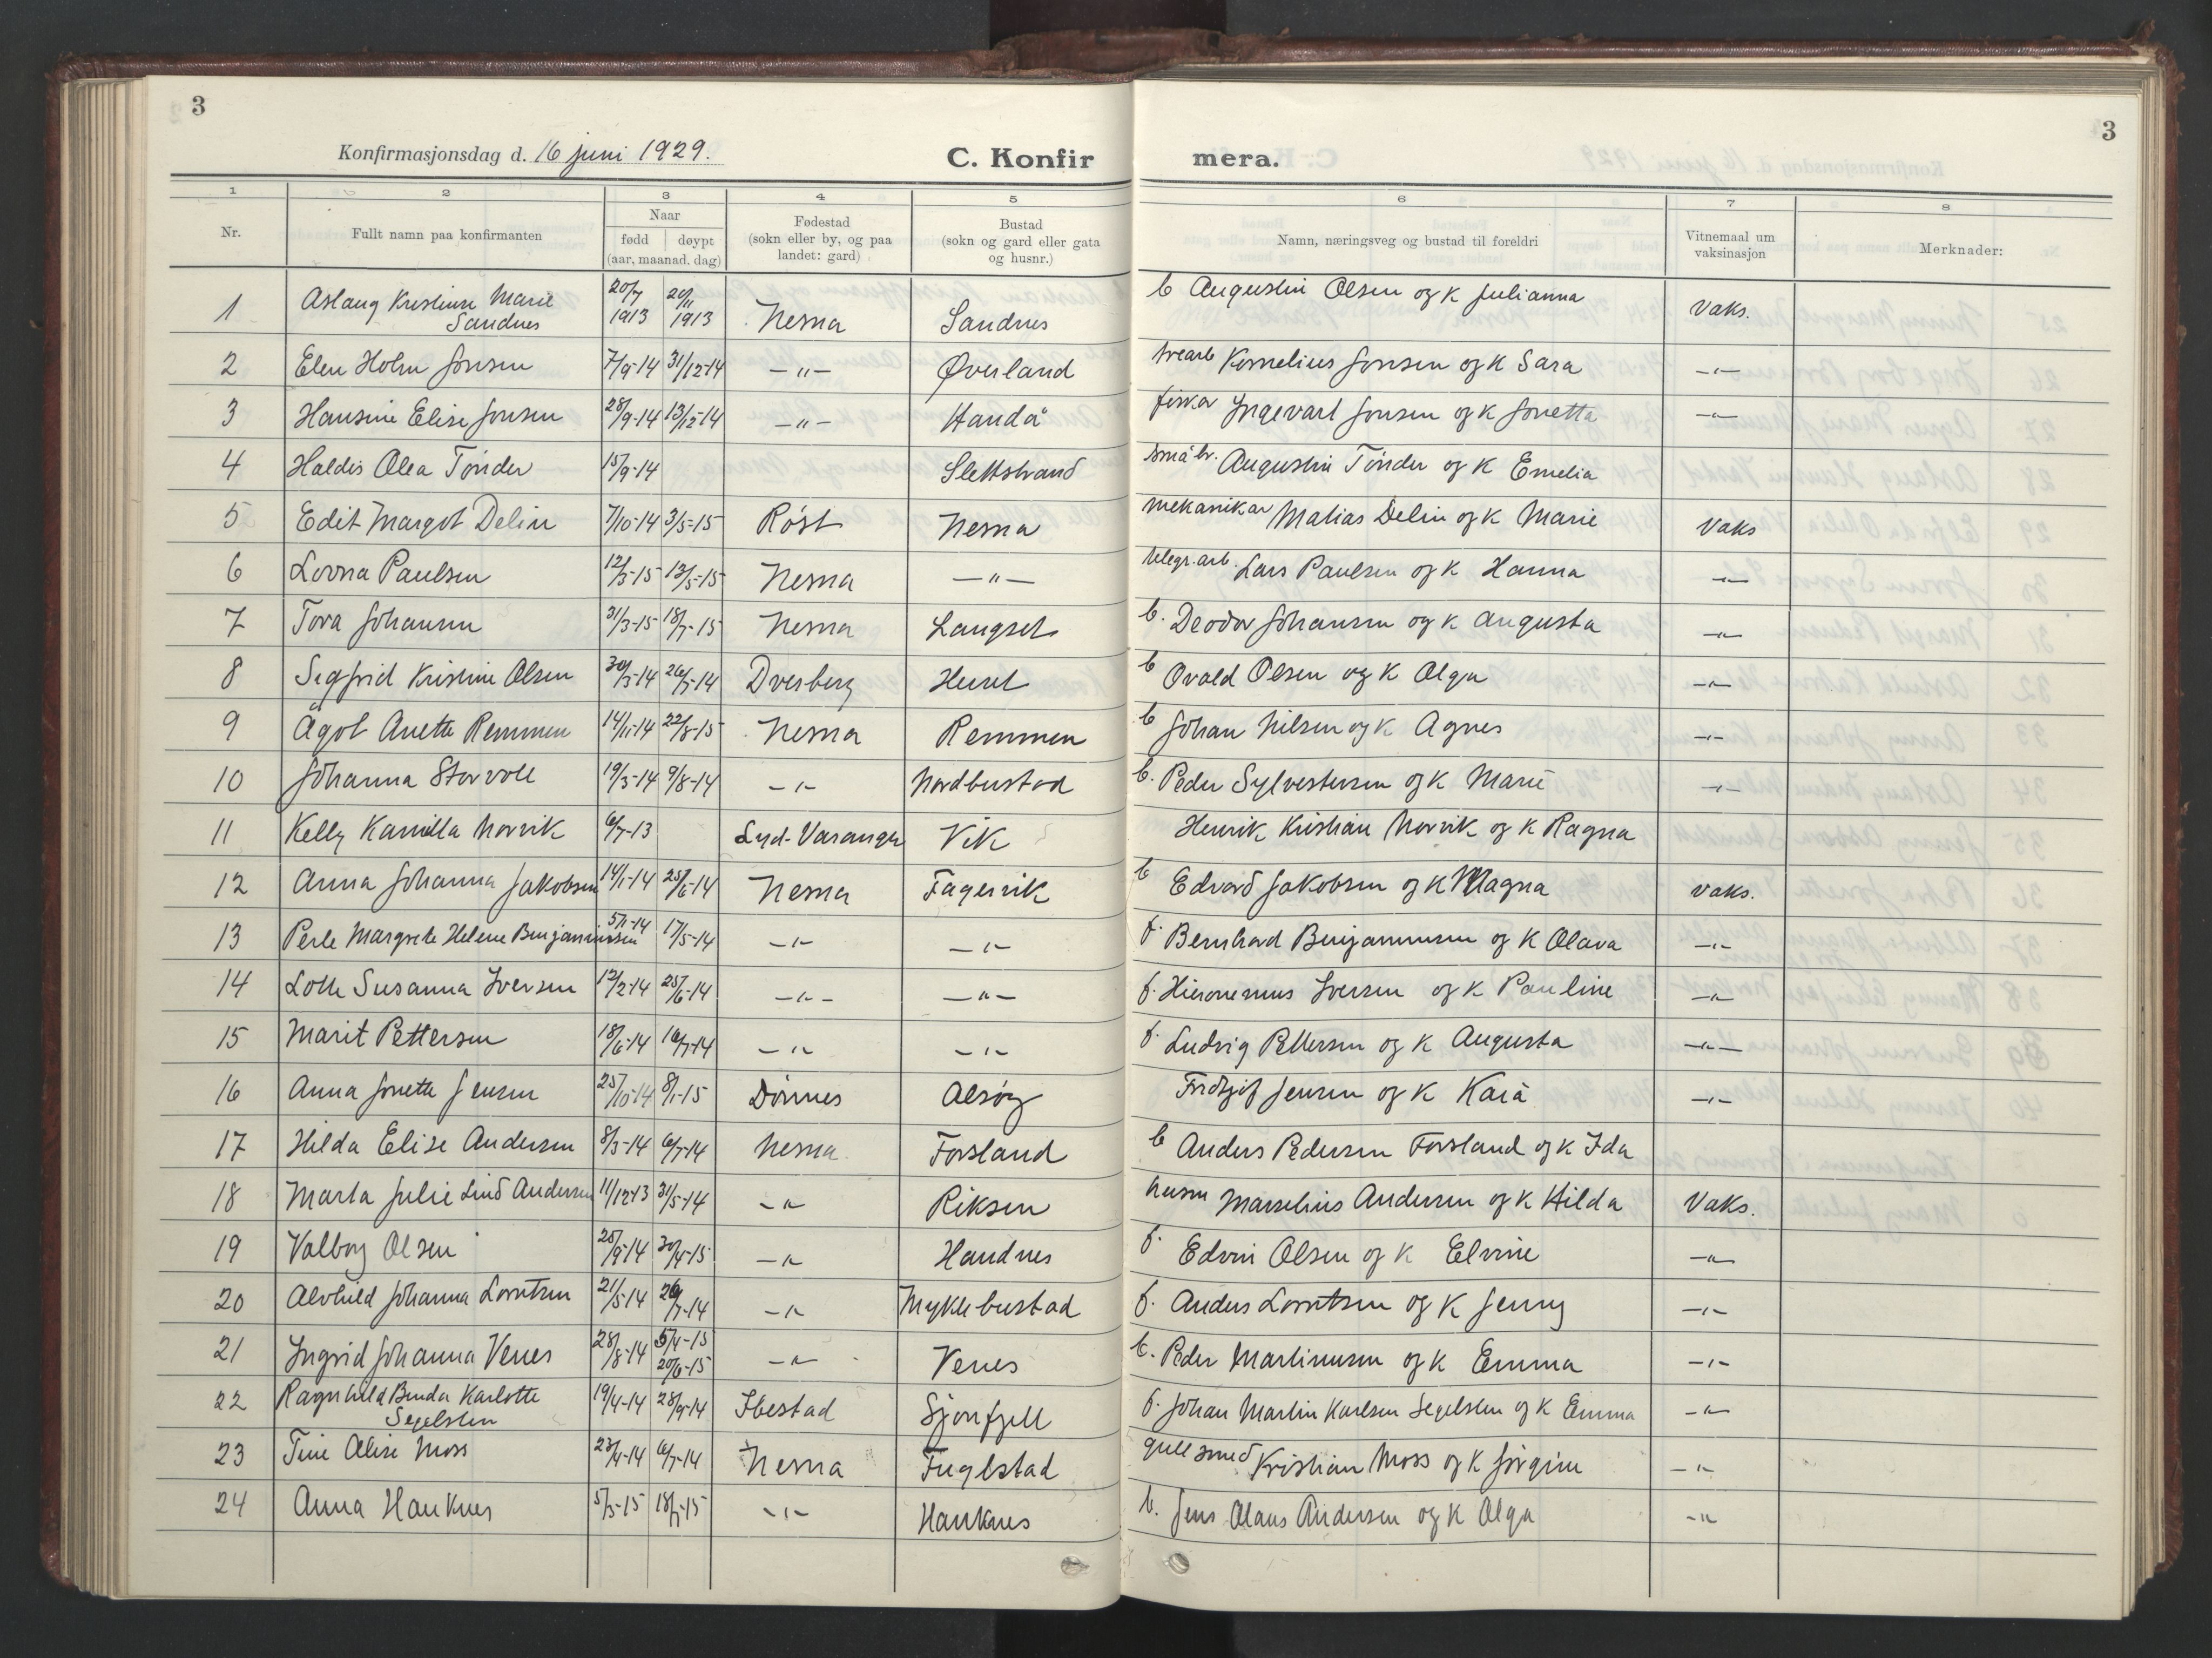 3
3
Konfirmasjonsdag d. 16 juni 1929.
C. Konfir
mera.
1 2 3 4 5 6 7 8
Nr.
Fullt namn paa konfirmanten
Naar
fødd døypt
(aar, maanad. dag)
Fødestad
(sokn eller by, og paa
landet: gard)
Bustad
(sokn og gard eller gata
og husnr.)
Namn, næringsveg og bustad til foreldri
Vitnemaal um
vaksinasjon
Merknader:
1 Aslaug Kristine Marie Sandnes 20/7 1913 20/11 1913 Nesna Sandnes b Augustin Olsen og k Julianna Vaks.
2 Elen Holm Jonsen 7/9-14 31/12-14 -"- Øverland trearb Kornelius Jonsen og k Sara -"-
3 Hansine Elise Jonsen 28/9-14 13/12-14 -"- Handå fiskar Ingevart Jonsen og k Jonetta -"-
4 Haldis Olea Tønder 15/9-14 Slettstrand småbr. Augustin Tønder og k Emelia
5 Edit Margot Delin 7/10-14 3/5-15 Røst Nesna mekanikar Matias Delin og k Marie Vaks
6 Lovna Paulsen 12/3-15 13/5-15 Nesna -"- telegr.arb. Lars Paulsen og k Hanna -"-
7 Tora Johansen 31/3-15 18/7-15 Nesna Langset b. Deodor Johansen og k Augusta -"-
8 Sigfrid Kristine Olsen 30/3-14 26/7-14 Dverberg b Ovald Olsen og k Olga -"-
9 Ågot Anette Remmen 14/11-14 22/8-15 Nesna Remmen b Johan Nilsen og k Agnes -"-
10 Johanna Storvoll 19/3-14 9/8-14 -"- Nordbustad b. Peder Sylvestersen og k Marie -"-
11 Kelly Kamilla Norvik 6/7-13 Syd-Varanger Vik Henrik Kristian Norvik og k Ragna
12 Anna Johanna Jakobsen 14/1-14 25/6-14 Nesna Fagervik b Edvard Jakobsen og k Magna Vaks.
13 Perle Margrete Helene Benjaminsen 5/1-14 17/5-14 -"- -"- f. Bernhard Benjaminsen og k Olava -"-
14 Lotte Susanna Iversen 12/2-14 25/6-14 -"- -"- f. Hieronemus Iversen og k Pauline -"-
15 Marit Pettersen 18/6-14 16/7-14 -"- -"- f. Ludvig Pettersen og k Augusta -"-
16 Anna Jonette Jensen 25/10-14 8/1-15 Dønnes Alsøy Fridtjof Jensen og k Kaia -"-
17 Hilda Elise Andersen 8/3-14 6/7-14 Nesna Forsland b Anders Pedersen Forsland og k Ida
18 Marta Julie Lind Andersen 11/12-13 31/5-14 -"- Riksen husm Marselius Andersen og k Hilda Vaks.
19 Valborg Olsen 25/9-14 30/4-15 -"- Handnes f. Edvin Olsen og k Elvine -"-
20 Alvhild Johanna Lorntsen 21/5-14 26/7-14 -"- Myklebustad f. Anders Lorntsen og k Jenny -"-
21 Ingrid Johanna Venes 28/8-14 5/4-15 20/6-15 -"- Venes b. Peder Martinusen og k Emma -"-
22 Ragnhild Benda Karlotte Segelsten 19/4-14 28/9-14 Ibestad Sjonfjell f. Johan Martin Karlsen Segelsten og k Emma -"-
23 Tine Elise Moss 23/4-14 6/7-14 Nesna Fuglstad gullsmed Kristian Moss og k Jørgine -"-
24 Anna Hauknes 5/3-15 18/7-15 -"- Hauknes b. Jens Olaus Andersen og k Olga -"-